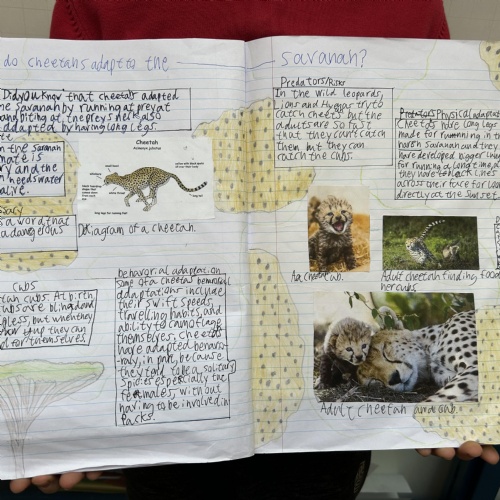 do cheetahs adapt to the
savanah?
Did you know that cheetahs adapted
Savanah by running at prey at
and biting at the preys neck also
adapted by having long legs.
in the Savanah
mate is
ry and the
needs water
alive.
is a word that
a dangerous
Cheetah
Acinonyx jubatus
Diagram of a cheetah.
Cubs
cubs. At birth
cubs are blind and
but when they
grow up they can
for themselves
behavioral adaptation
some of a cheetas behavioral
adaptations include
their swift speeds,
travelling habits, and
ability to camoflage
themselves, cheetas
have adapted behavio-
raly, in part, because
they tend to be a solitary
Species especially the
females, without
having to be involved in
Packs.
Predators/Risks
In the wild leopards,
Lions and Hyenas try to
catch cheets but the
adults are so fast
that they can't catch
them but they can
catch the cubs.
Physical adaptat
Cheetas have long legs
made for running in the
Savanah and they
have developed bigger lungs
for running a long time also
they have black lines
across their face for look
directly at the sunset.
A cheetah cub.
Adult cheetah finding food
her cubs.
Adult cheetah and cub.